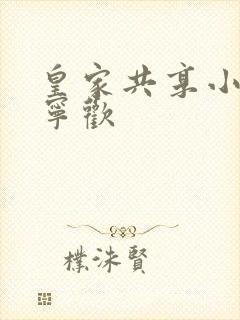 皇家共享小
寧歡
樸洙賢